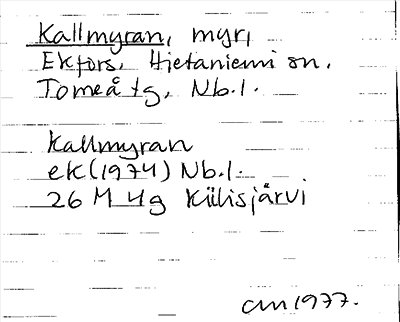 Kallmyran, myr,
Ekfors. Hietaniemi sn.
Torneå tg, Nb.l.
Kallmyran
ek (1974) Nb.l.
26 M 4g Kiilisjärvi
cm 1977.